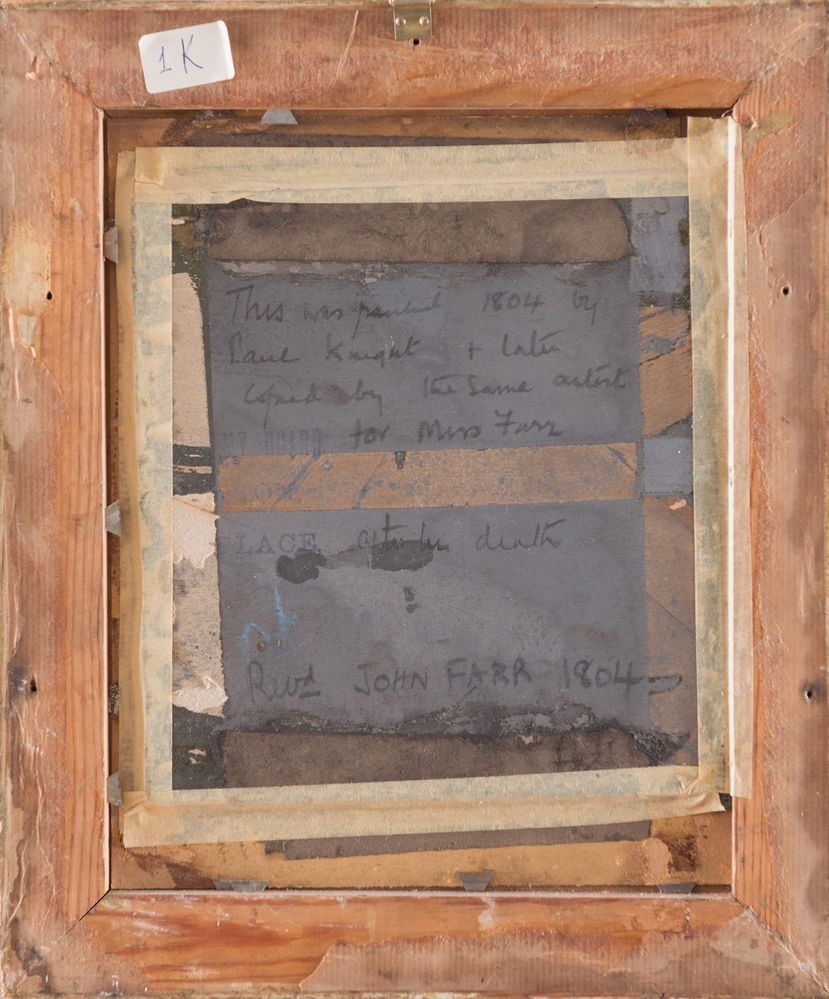 1K
This was painted 1804 by
Paul Knight + later
Copied by the same artist
for Miss Farr
LACE after his death
Revd JOHN FARR 1804